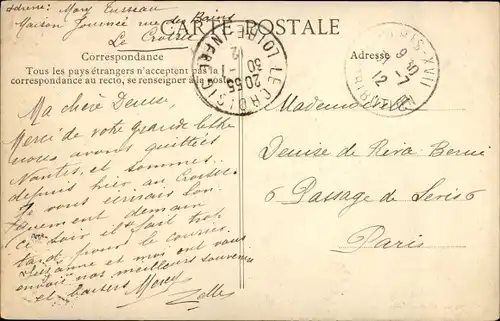 Adresse: Mary Tusseau
Maison Journée rue des
Le Croisic
CARTE POSTALE
Correspondance
Adresse
Tous les pays étrangers n'acceptent pas la
correspondance au recto, se renseigner à la poste
LE CROISIC
LOIRE INFRE
20-55
30-1
PARIS XVII
9 30
12-7
Ma chère Denise,
Merci de votre grande lettre
nous avons quittées
Nantes, et sommes
depuis hier au Croisic.
Je vous écrirais lon-
guement demain
ce soir il fait trop
tard pour le courier.
Suzanne et moi ont vous
envois nos meilleurs souvenirs
et baisers Mary
Mademoiselle
Denise de Riva Berni
6 Passage de
Paris